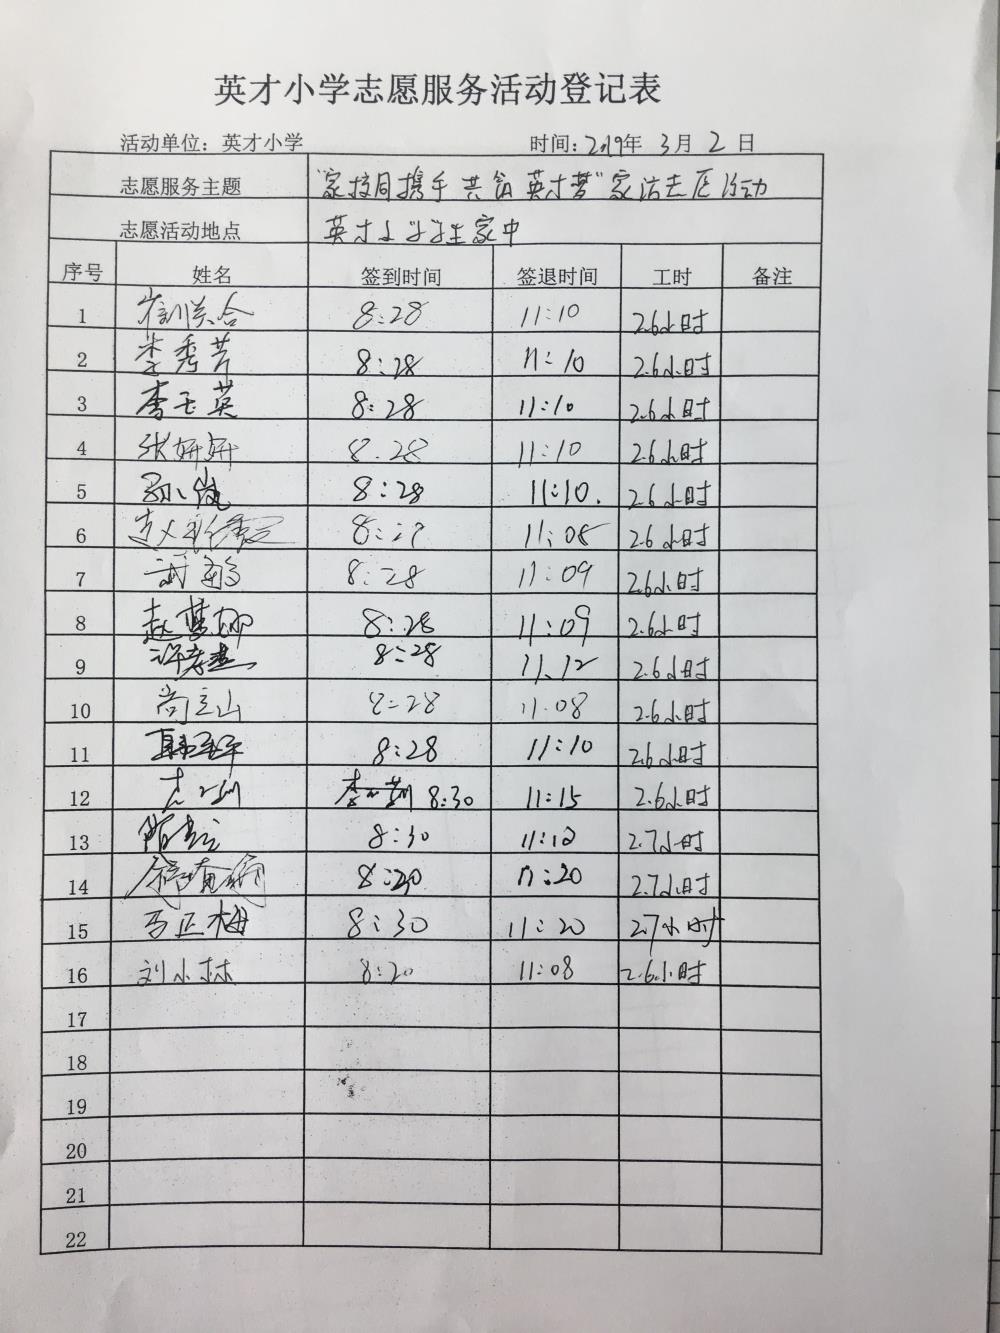 英才小学志愿服务活动登记表
活动单位：英才小学 时间：2019年 3月 2日
志愿服务主题 "家校同携手 共筑英才梦"家访志愿活动
志愿活动地点 英才小学学生家中
序号 姓名 签到时间 签退时间 工时 备注
1 8:28 11:10 2.6小时
2 李秀芹 8:28 11:10 2.6小时
3 李玉英 8:28 11:10 2.6小时
4 张妍妍 8:28 11:10 2.6小时
5 8:28 11:10. 2.6小时
6 11:08 2.6小时
7 武鹏 8:28 11:09 2.6小时
8 赵梦娜 8:28 11:09 2.6小时
9 8:28 11:12 2.6小时
10 尚立山 8:28 11:08 2.6小时
11 8:28 11:10 2.6小时
12 8:30 11:15 2.6小时
13 8:30 2.7小时
14 11:20 2.7小时
15 马正梅 8:30 11:20 2.7小时
16 刘小林 8:20 11:08 2.6小时
17
18
19
20
21
22